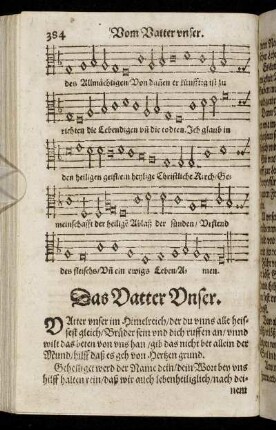 384 Vom Vatter vnser.
den Allmächtigen/Von dañen er künfftig ist zu
richten die Lebendigen vñ die todten. Ich glaub in
den heiligen geist/ein heylige Christliche Kirch/Ge-
meinschafft der heiligē Ablaß der sünden/Vrstend
des fleischs/Vñ ein ewigs Leben/A- men.
Das Vatter Vnser.
VAtter vnser im Himelreich/der du vnns alle heis-
sest gleich/Brüder sein vnd dich ruffen an/vnnd
wilt das beten von vns han/gib das nicht bet allein der
Mund/hilff daß es geh von Hertzen grund.
Geheiliget werd der Name dein/dein Wort bey vns
hilff halten rein/daß wir auch leben heiliglich/nach dei-
nem